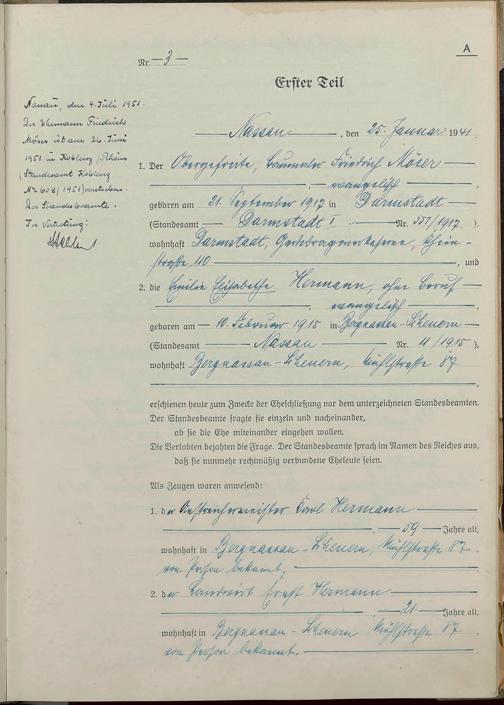 A
Nr. 3
Erster Teil
Nassau, den 4. Juli 1951.
Der Ehemann Friedrich
Möser ist am 26. Juni
1951 in Koblenz/Rhein
(Standesamt Koblenz
Nr. 608/1951) verstorben.
Der Standesbeamte.
In Vertretung:
Nassau, den 25. Januar 1941.
1. Der Obergefreite, Friedrich Möser
evangelisch
geboren am 21. September 1917 in Darmstadt
(Standesamt Darmstadt I Nr. 551/1917),
wohnhaft Darmstadt, Rhein-
straße 110, und
2. die Emilie Elisabethe Hermann, ohne Beruf
evangelisch
geboren am 10. Februar 1915 in Bergnassau-Scheuern
(Standesamt Nassau Nr. 11/1915),
wohnhaft Bergnassau-Scheuern, Mühlstraße 87
erschienen heute zum Zwecke der Eheschließung vor dem unterzeichneten Standesbeamten.
Der Standesbeamte fragte sie einzeln und nacheinander,
ob sie die Ehe miteinander eingehen wollen.
Die Verlobten bejahten die Frage. Der Standesbeamte sprach im Namen des Reiches aus,
daß sie nunmehr rechtmäßig verbundene Eheleute seien.
Als Zeugen waren anwesend:
1. der Anstreichermeister Karl Hermann
59 Jahre alt,
wohnhaft in Bergnassau-Scheuern, Mühlstraße 87.
von Person bekannt.
2. der Landwirt Ernst Hermann
21 Jahre alt,
wohnhaft in Bergnassau-Scheuern, Mühlstraße 87
von Person bekannt.